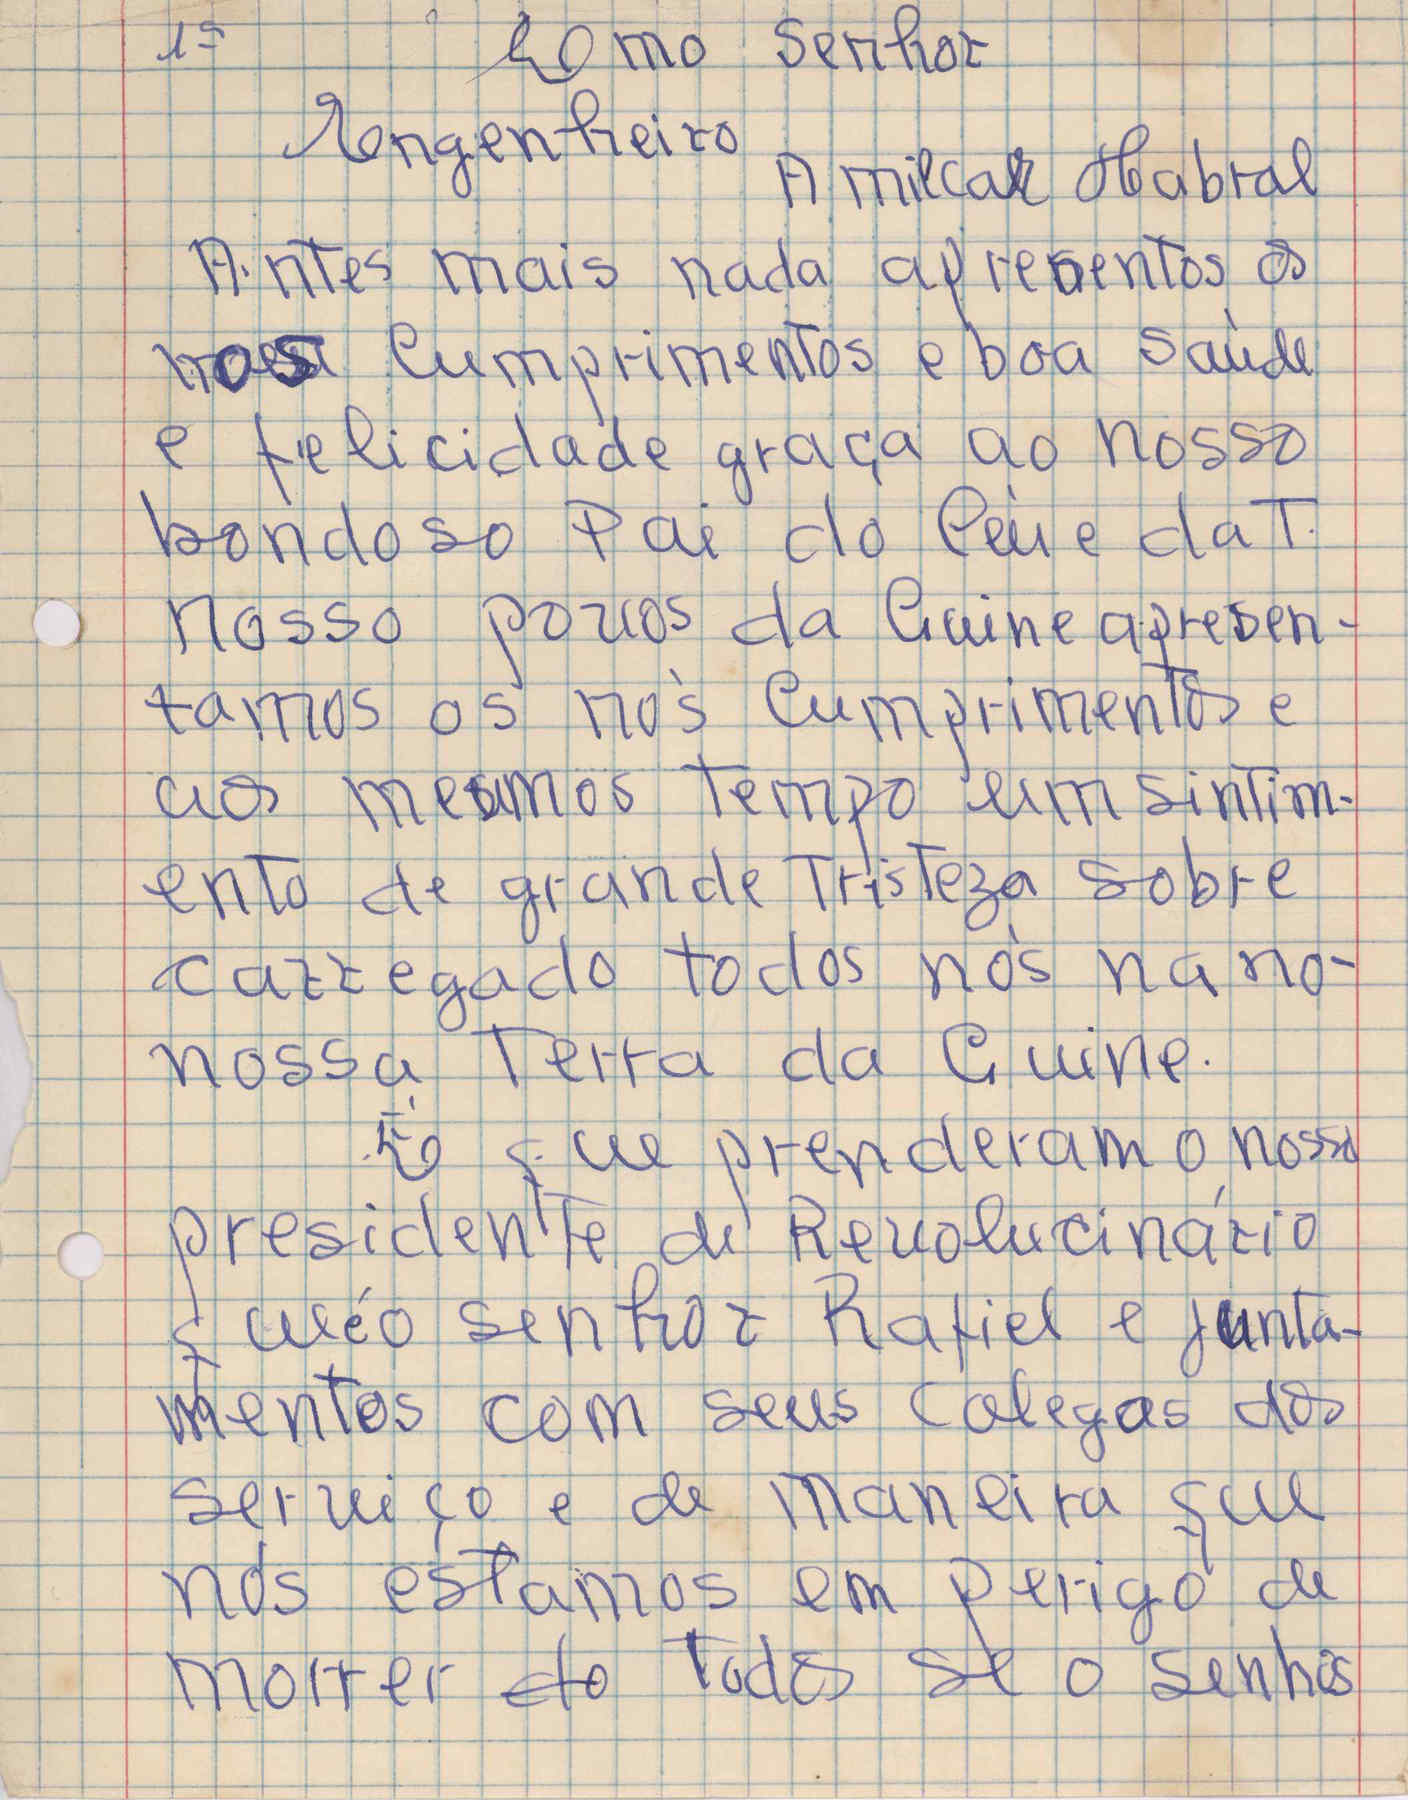 1º
Exmo Senhor
Engenheiro
Amilcar Cabral
Antes mais nada apresentos os
nos Cumprimentos e boa saúde
e felicidade graça ao nosso
bondoso Pai do Céu e da T.
nosso povos da Guine apresen-
tamos os nós Cumprimentos e
aos mesmos tempo um sintim-
ento de grande Tristeza sobre
carregado todos nós na no-
nossa Terra da Guine.
É que prenderam o nosso
presidente de Revolucinário
que é o senhor Rafiel e junta-
mentos com seus colegas dos
serviço e de maneira que
nós estamos em perigo de
morrer do Todos se o senhos